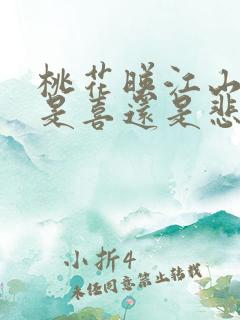 桃花暖江山
是喜還是悲
小折4
未经同意禁止转载